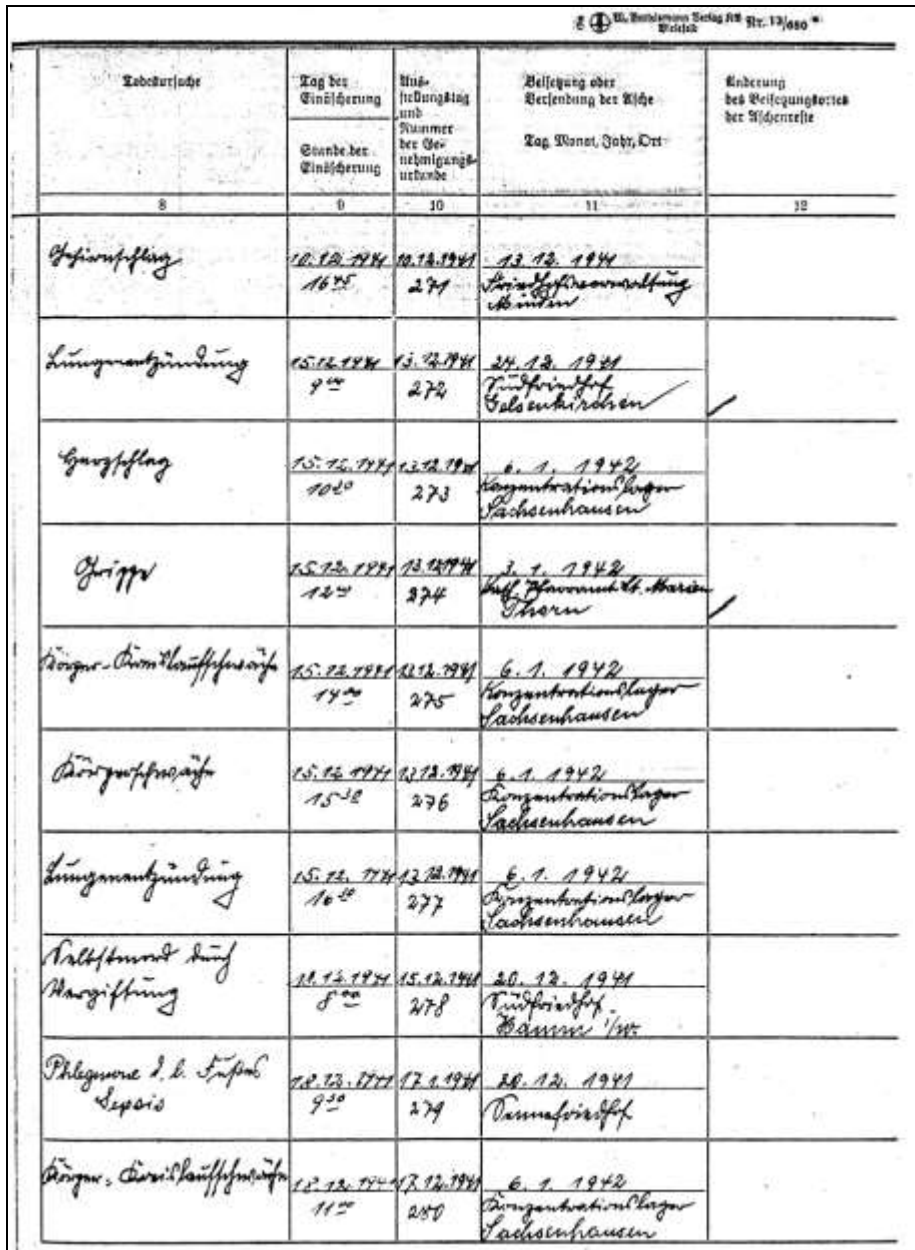 W. Bertelsmann Verlag KG Nr. 13/680
Bielefeld
Todesursache
Tag der
Einäscherung
Stunde der
Einäscherung
Aus-
stellungstag
und
Nummer
der Ge-
nehmigungs-
urkunde
Beisetzung oder
Versendung der Asche
Tag, Monat, Jahr, Ort
Änderung
des Beisetzungsortes
der Aschenreste
8 9 10 11 12
Gehirnschlag 10.12.1941 10.12.1941 13.12.1941
16 45 271 Friedhofsverwaltung
Minden
Lungenentzündung 15.12.1941 13.12.1941 24.12.1941
9 00 272 Südfriedhof
Gelsenkirchen
Herzschlag 15.12.1941 13.12.1941 6.1.1942
10 273 Konzentrationslager
Sachsenhausen
Grippe 15.12.1941 13.12.1941 3.1.1942
12 274 Kath. Pfarramt St. Marien
Thorn
Körper-Kreislaufschwäche 15.12.1941 13.12.1941 6.1.1942
14 00 275 Konzentrationslager
Sachsenhausen
Körperschwäche 15.12.1941 13.12.1941 6.1.1942
15 30 276 Konzentrationslager
Sachsenhausen
Lungenentzündung 15.12.1941 13.12.1941 6.1.1942
16 277 Konzentrationslager
Sachsenhausen
Selbstmord durch
Vergiftung 18.12.1941 15.12.1941 20.12.1941
8 00 278 Südfriedhof
Hamm i/W.
Phlegmone d. l. Fußes
Sepsis 18.12.1941 17.1.1941 20.12.1941
9 30 279 Sennefriedhof
Körper-Kreislaufschwäche 18.12.1941 17.12.1941 6.1.1942
11 00 280 Konzentrationslager
Sachsenhausen